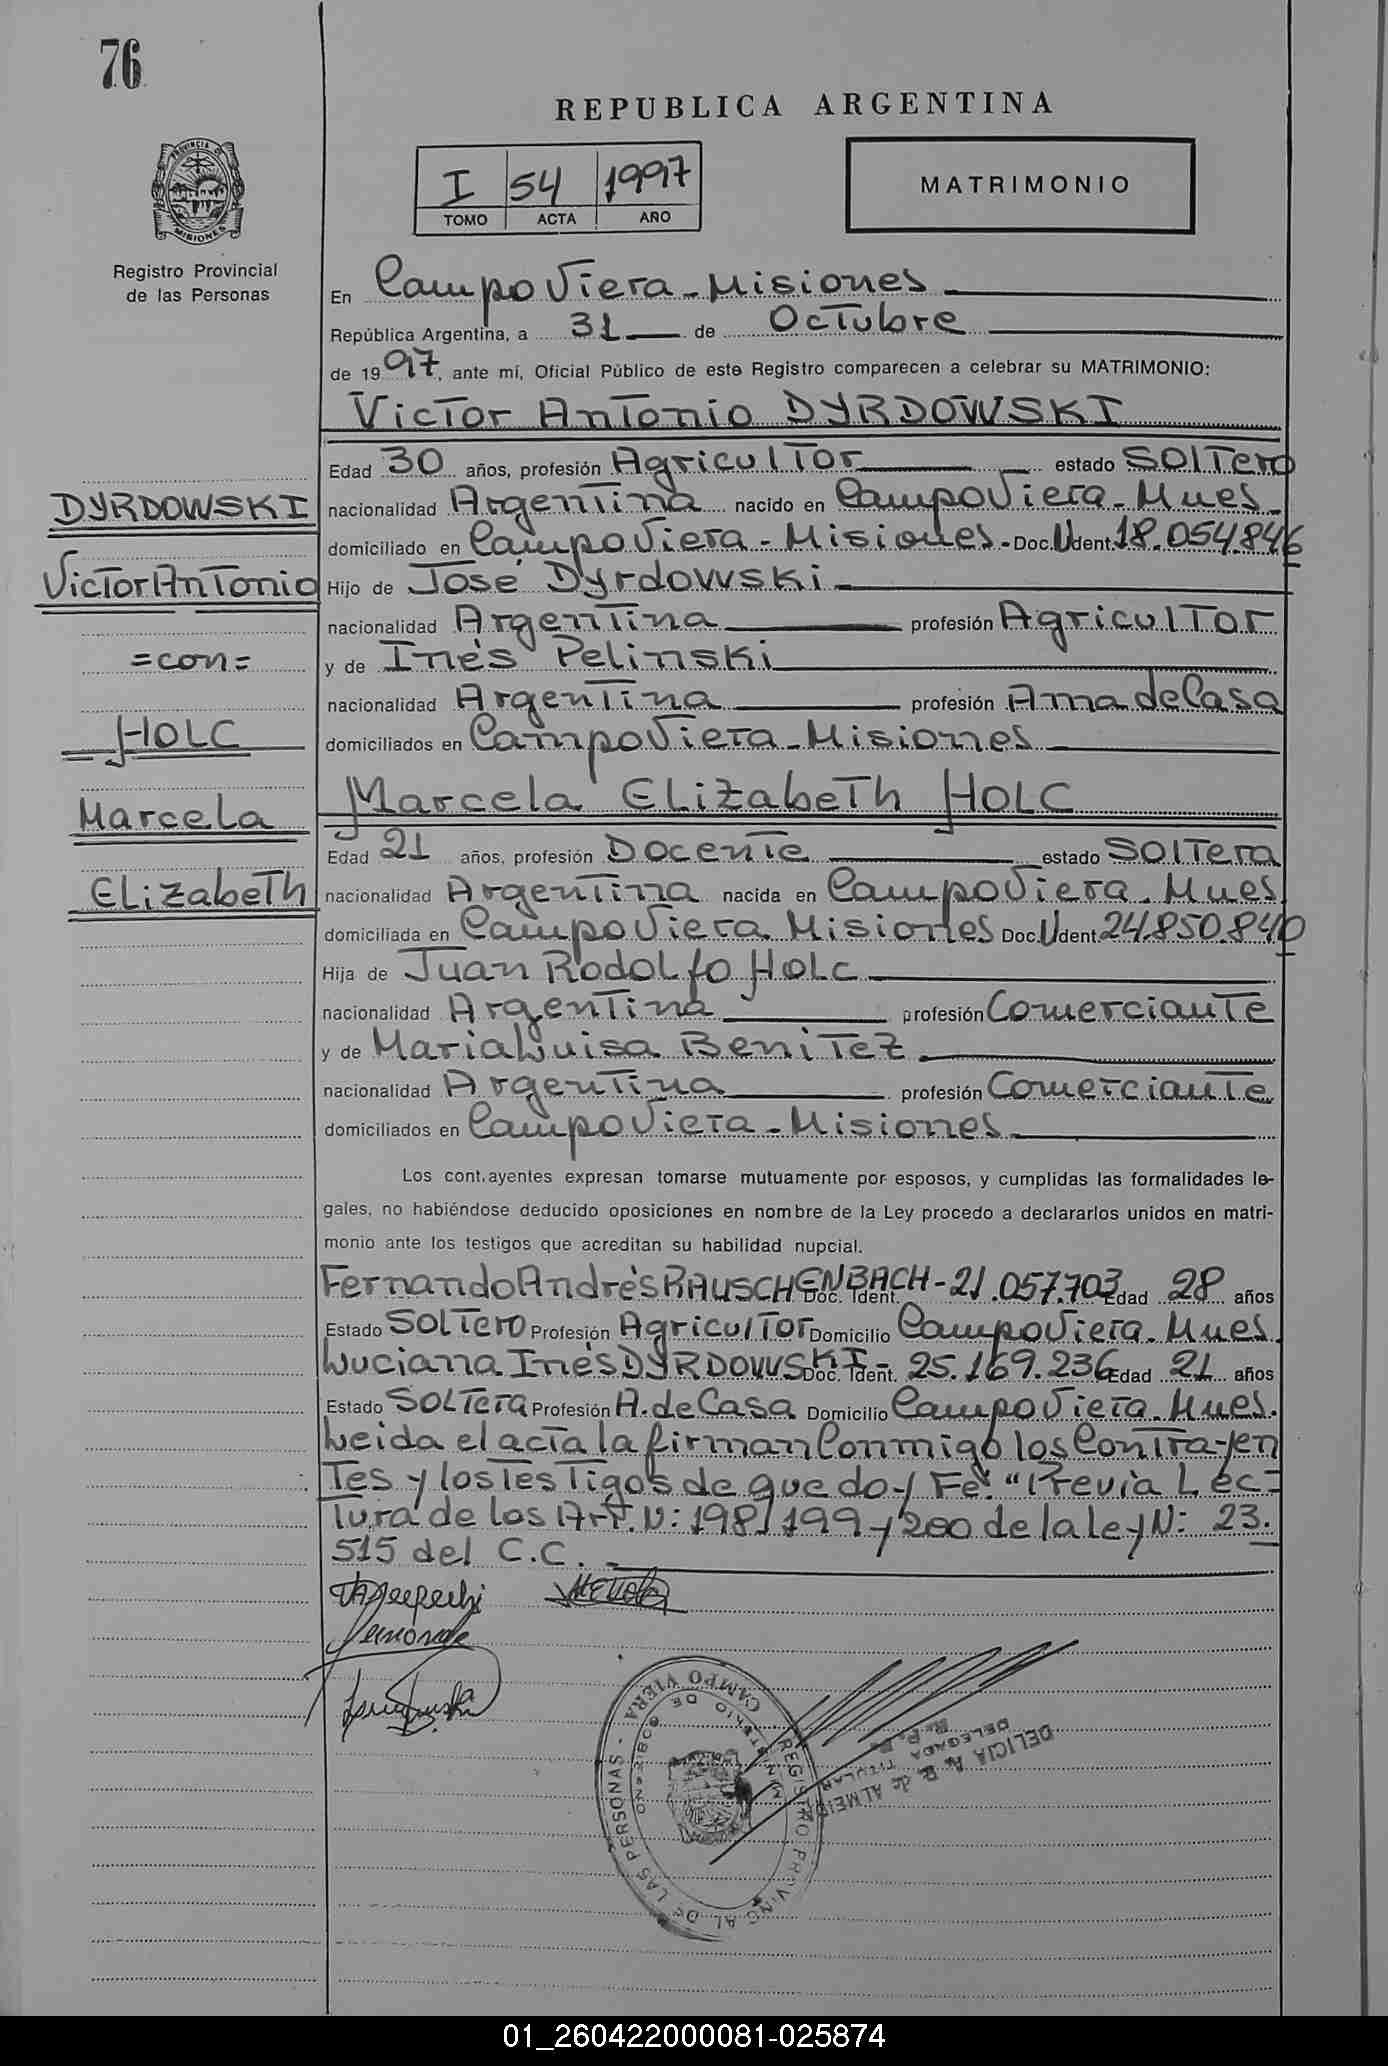 76
REPUBLICA ARGENTINA
I 54 1997
TOMO ACTA AÑO
MATRIMONIO
PROVINCIA DE
MISIONES
Registro Provincial
de las Personas
En Campo Viera - Misiones
República Argentina, a 31 de Octubre
de 1997, ante mí, Oficial Público de este Registro comparecen a celebrar su MATRIMONIO:
Victor Antonio DYRDOWSKI
Edad 30 años, profesión Agricultor estado Soltero
DYRDOWSKI
nacionalidad Argentina nacido en Campo Viera - Mnes
domiciliado en Campo Viera - Misiones - Doc. U Ident. 18.054.846
Victor Antonio
Hijo de José Dyrdowski
nacionalidad Argentina profesión Agricultor
=con=
y de Inés Pelinski
nacionalidad Argentina profesión Ama de Casa
HOLC
domiciliados en Campo Viera - Misiones
Marcela
Marcela Elizabeth HOLC
Edad 21 años, profesión Docente estado Soltera
Elizabeth
nacionalidad Argentina nacida en Campo Viera. Mnes
domiciliada en Campo Viera Misiones Doc. U Ident. 24.850.840
Hija de Juan Rodolfo Holc
nacionalidad Argentina profesión Comerciante
y de Maria Luisa Benitez
nacionalidad Argentina profesión Comerciante
domiciliados en Campo Viera - Misiones
Los cont.ayentes expresan tomarse mutuamente por esposos, y cumplidas las formalidades le-
gales, no habiéndose deducido oposiciones en nombre de la Ley procedo a declararlos unidos en matri-
monio ante los testigos que acreditan su habilidad nupcial.
Fernando Andrés RAUSCHENBACH - Doc. Ident. 21.057.703 Edad 28 años
Estado Soltero Profesión Agricultor Domicilio Campo Viera. Mnes.
Luciana Inés DYRDOWSKI - Doc. Ident. 25.169.236 Edad 21 años
Estado Soltera Profesión A. de Casa Domicilio Campo Viera. Mnes.
Leida el acta la firman Conmigo los Contrayen
tes y los testigos de que doy Fe. "Previa Lec=
tura de los Art. N: 198, 199 y 200 de la ley N: 23.
515 del C.C. -
REGISTRO PROVINCIAL DE LAS PERSONAS - CAMPO VIERA
MINISTERIO DE GOBIERNO
DELICIA A. R. de ALMEIDA
TITULAR
DELEGADA
R. P. P.
01_260422000081-025874